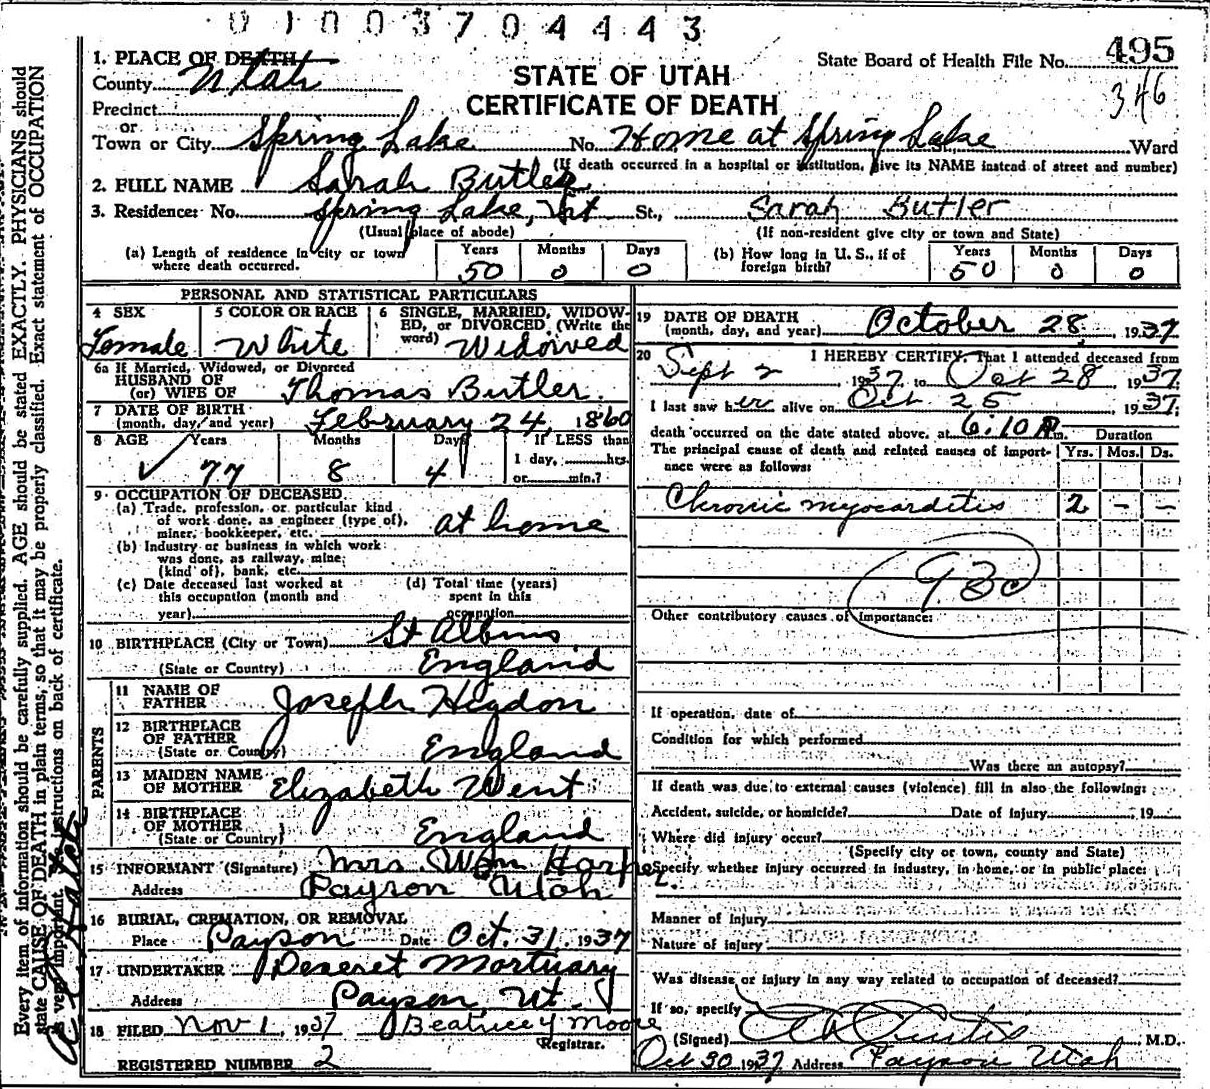 01003704443
1. PLACE OF DEATH
County Utah
Precinct
or
Town or City Spring Lake
STATE OF UTAH
CERTIFICATE OF DEATH
State Board of Health File No. 495
346
No. Home at Spring Lake Ward
(If death occurred in a hospital or institution, give its NAME instead of street and number)
2. FULL NAME Sarah Butler
3. Residence: No. Spring Lake, Ut St., Sarah Butler
(Usual place of abode) (If non-resident give city or town and State)
(a) Length of residence in city or town where death occurred. Years 50 Months 0 Days 0
(b) How long in U. S., if of foreign birth? Years 50 Months 0 Days 0
PERSONAL AND STATISTICAL PARTICULARS
4 SEX Female
5 COLOR OR RACE White
6 SINGLE, MARRIED, WIDOWED, or DIVORCED (Write the word) Widowed
6a If Married, Widowed, or Divorced
HUSBAND OF
(or) WIFE OF Thomas Butler
7 DATE OF BIRTH
(month, day, and year) February 24, 1860
8 AGE Years 77 Months 8 Days 4
If LESS than
1 day, hrs.
or min.?
9 OCCUPATION OF DECEASED
(a) Trade, profession, or particular kind
of work done, as engineer (type of),
miner, bookkeeper, etc. at home
(b) Industry or business in which work
was done, as railway, mine
(kind of), bank, etc.
(c) Date deceased last worked at
this occupation (month and
year)
(d) Total time (years)
spent in this
occupation
10 BIRTHPLACE (City or Town) St Albins
(State or Country) England
PARENTS
11 NAME OF
FATHER Joseph Higdon
12 BIRTHPLACE
OF FATHER
(State or Country) England
13 MAIDEN NAME
OF MOTHER Elizabeth Went
14 BIRTHPLACE
OF MOTHER
(State or Country) England
15 INFORMANT (Signature) Mrs. Wm Harper.
Address Payson Utah
16 BURIAL, CREMATION, OR REMOVAL
Place Payson Date Oct. 31, 1937
17 UNDERTAKER Deseret Mortuary
Address Payson, Ut.
18 FILED Nov 1, 1937 Beatrice Y Moore
Registrar.
REGISTERED NUMBER 2
19 DATE OF DEATH
(month, day, and year) October 28, 1937
20 I HEREBY CERTIFY, That I attended deceased from
Sept 2 1937, to Oct 28 1937.
I last saw her alive on Oct 25 1937;
death occurred on the date stated above, at 6:10 P.m. Duration
The principal cause of death and related causes of importance were as follows: Yrs. Mos. Ds.
Chronic myocarditis 2 - -
Other contributory causes of importance:
If operation, date of
Condition for which performed
Was there an autopsy?
If death was due to external causes (violence) fill in also the following:
Accident, suicide, or homicide? Date of injury 19
Where did injury occur?
(Specify city or town, county and State)
Specify whether injury occurred in industry, in home, or in public place:
Manner of injury
Nature of injury
Was disease or injury in any way related to occupation of deceased?
If so, specify
(Signed) Curtis M.D.
Oct 30 1937 Address Payson Utah
Every item of information should be carefully supplied. AGE should be stated EXACTLY. PHYSICIANS should
state CAUSE OF DEATH in plain terms, so that it may be properly classified. Exact statement of OCCUPATION
is very important. See instructions on back of certificate.